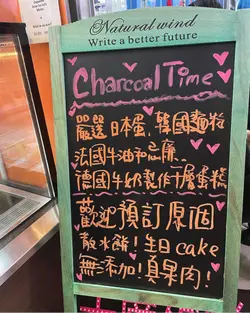 Natural wind
Write a better future
Charcoal Time
嚴選日本蛋,韓國麵粉
法國牛油和忌廉、
德國牛奶製作千層蛋糕
歡迎預訂原個
散水餅!生日cake
無添加!真果肉!